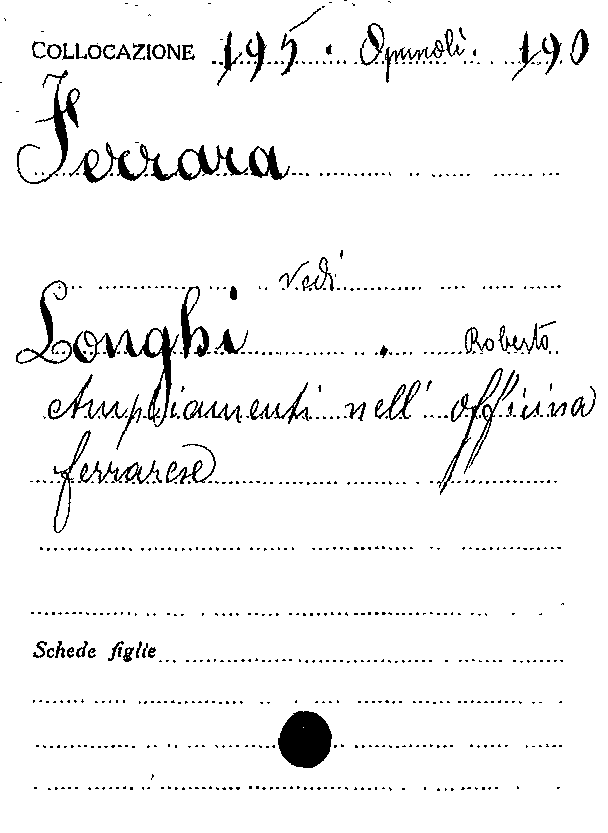 COLLOCAZIONE 195. Opuscoli. 190
Ferrara
Vedi
Longhi. Roberto
Ampliamenti nell'officina
ferrarese
Schede figlie